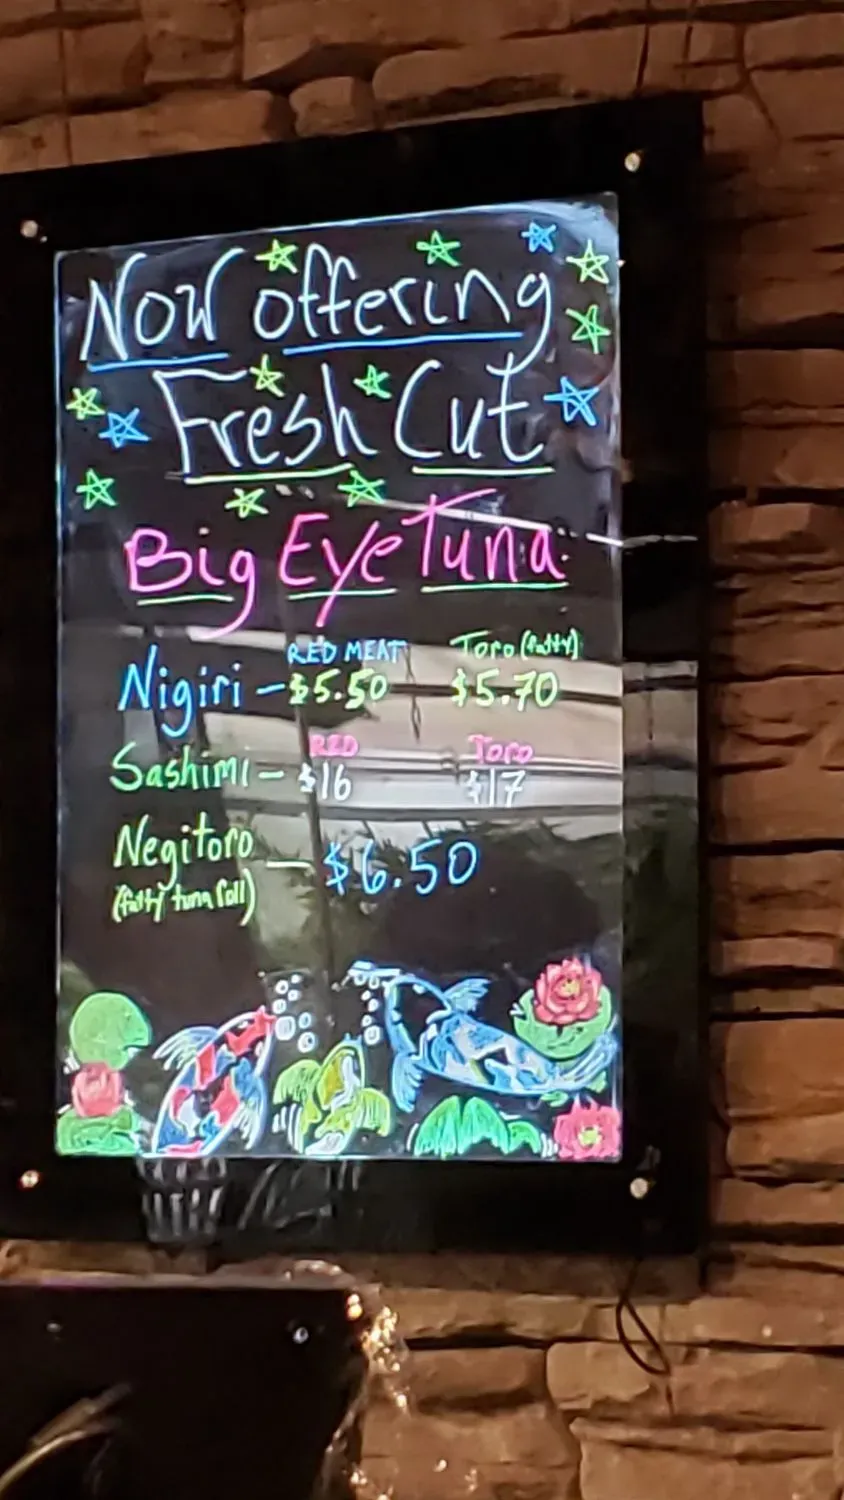 Now offering
Fresh Cut
Big Eye Tuna
RED MEAT Toro (fatty)
Nigiri - $5.50 $5.70
RED Toro
Sashimi - $16 $17
Negitoro - $6.50
(fatty tuna roll)